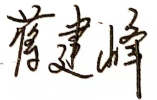 蒋建峰